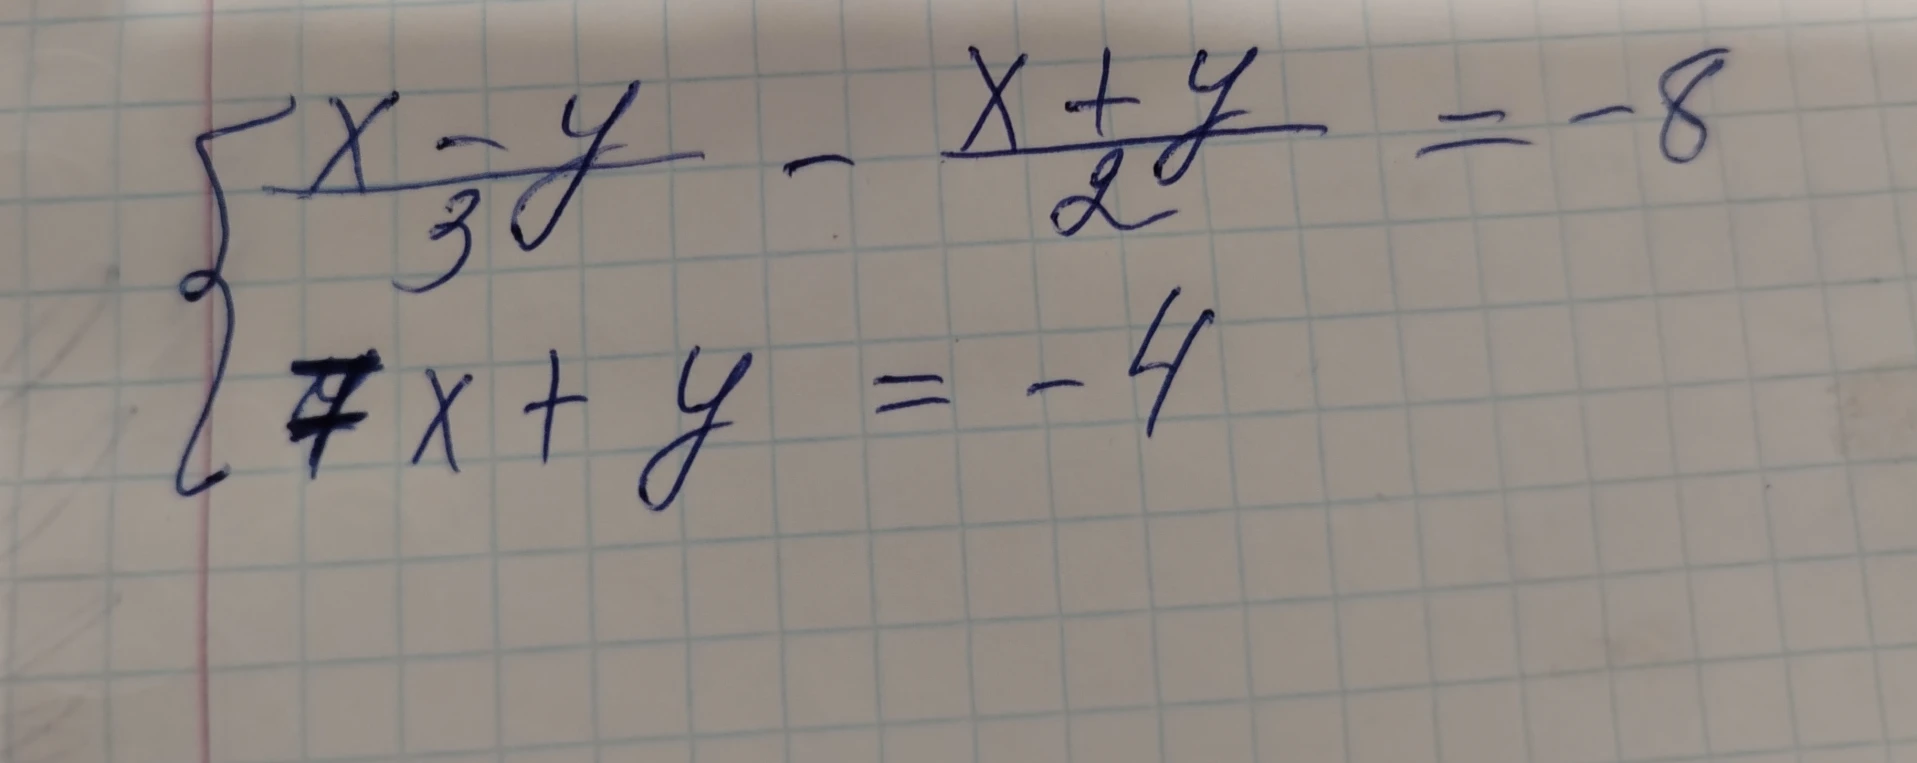 { (x - y)/3 - (x + y)/2 = - 8
7x + y = - 4